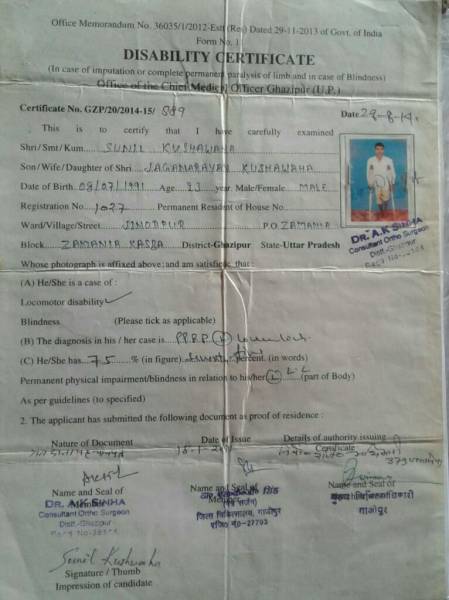 Office Memorandum No. 36035/1/2012-Estt (Res) Dated 29-11-2013 of Govt. of India
Form No. 1
DISABILITY CERTIFICATE
(In case of imputation or complete permanent paralysis of limb and in case of Blindness)
Office of the Chief Medical Officer Ghazipur (U.P.)
Certificate No. GZP/20/2014-15/ 589 Date 28-8-14.
This is to certify that I have carefully examined
Shri/Smt/Kum. SUNIL KUSHAWAHA
Son/Wife/Daughter of Shri JAGANARAYAN KUSHAWAHA
Date of Birth 08/07/1991 Age 23 year Male/Female MALE
Registration No 1027 Permanent Resident of House No
Ward/Village/Street P.O ZAMANIA
Block ZAMANIA KASBA District-Ghazipur State-Uttar Pradesh
DR. A.K SINHA
Consultant Ortho Surgeon
Distt.-Ghazipur
Whose photograph is affixed above; and am satisfied that :
(A) He/She is a case of :
Locomotor disability
Blindness (Please tick as applicable)
(B) The diagnosis in his / her case is P.P.R.P.
(C) He/She has 75 % (in figure) percent. (in words)
Permanent physical impairment/blindness in relation to his/her (L) L.L (part of Body)
As per guidelines (to specified)
2. The applicant has submitted the following document as proof of residence :
Nature of Document Date of Issue Details of authority issuing
Certificate
Name and Seal of Name and Seal of Name and Seal of
Member
DR. A.K SINHA
Consultant Ortho Surgeon
Distt.-Ghazipur
जिला चिकित्सालय, गाजीपुर
मुख्य चिकित्साधिकारी
गाजीपुर
Sunil Kushwaha
Signature / Thumb
Impression of candidate